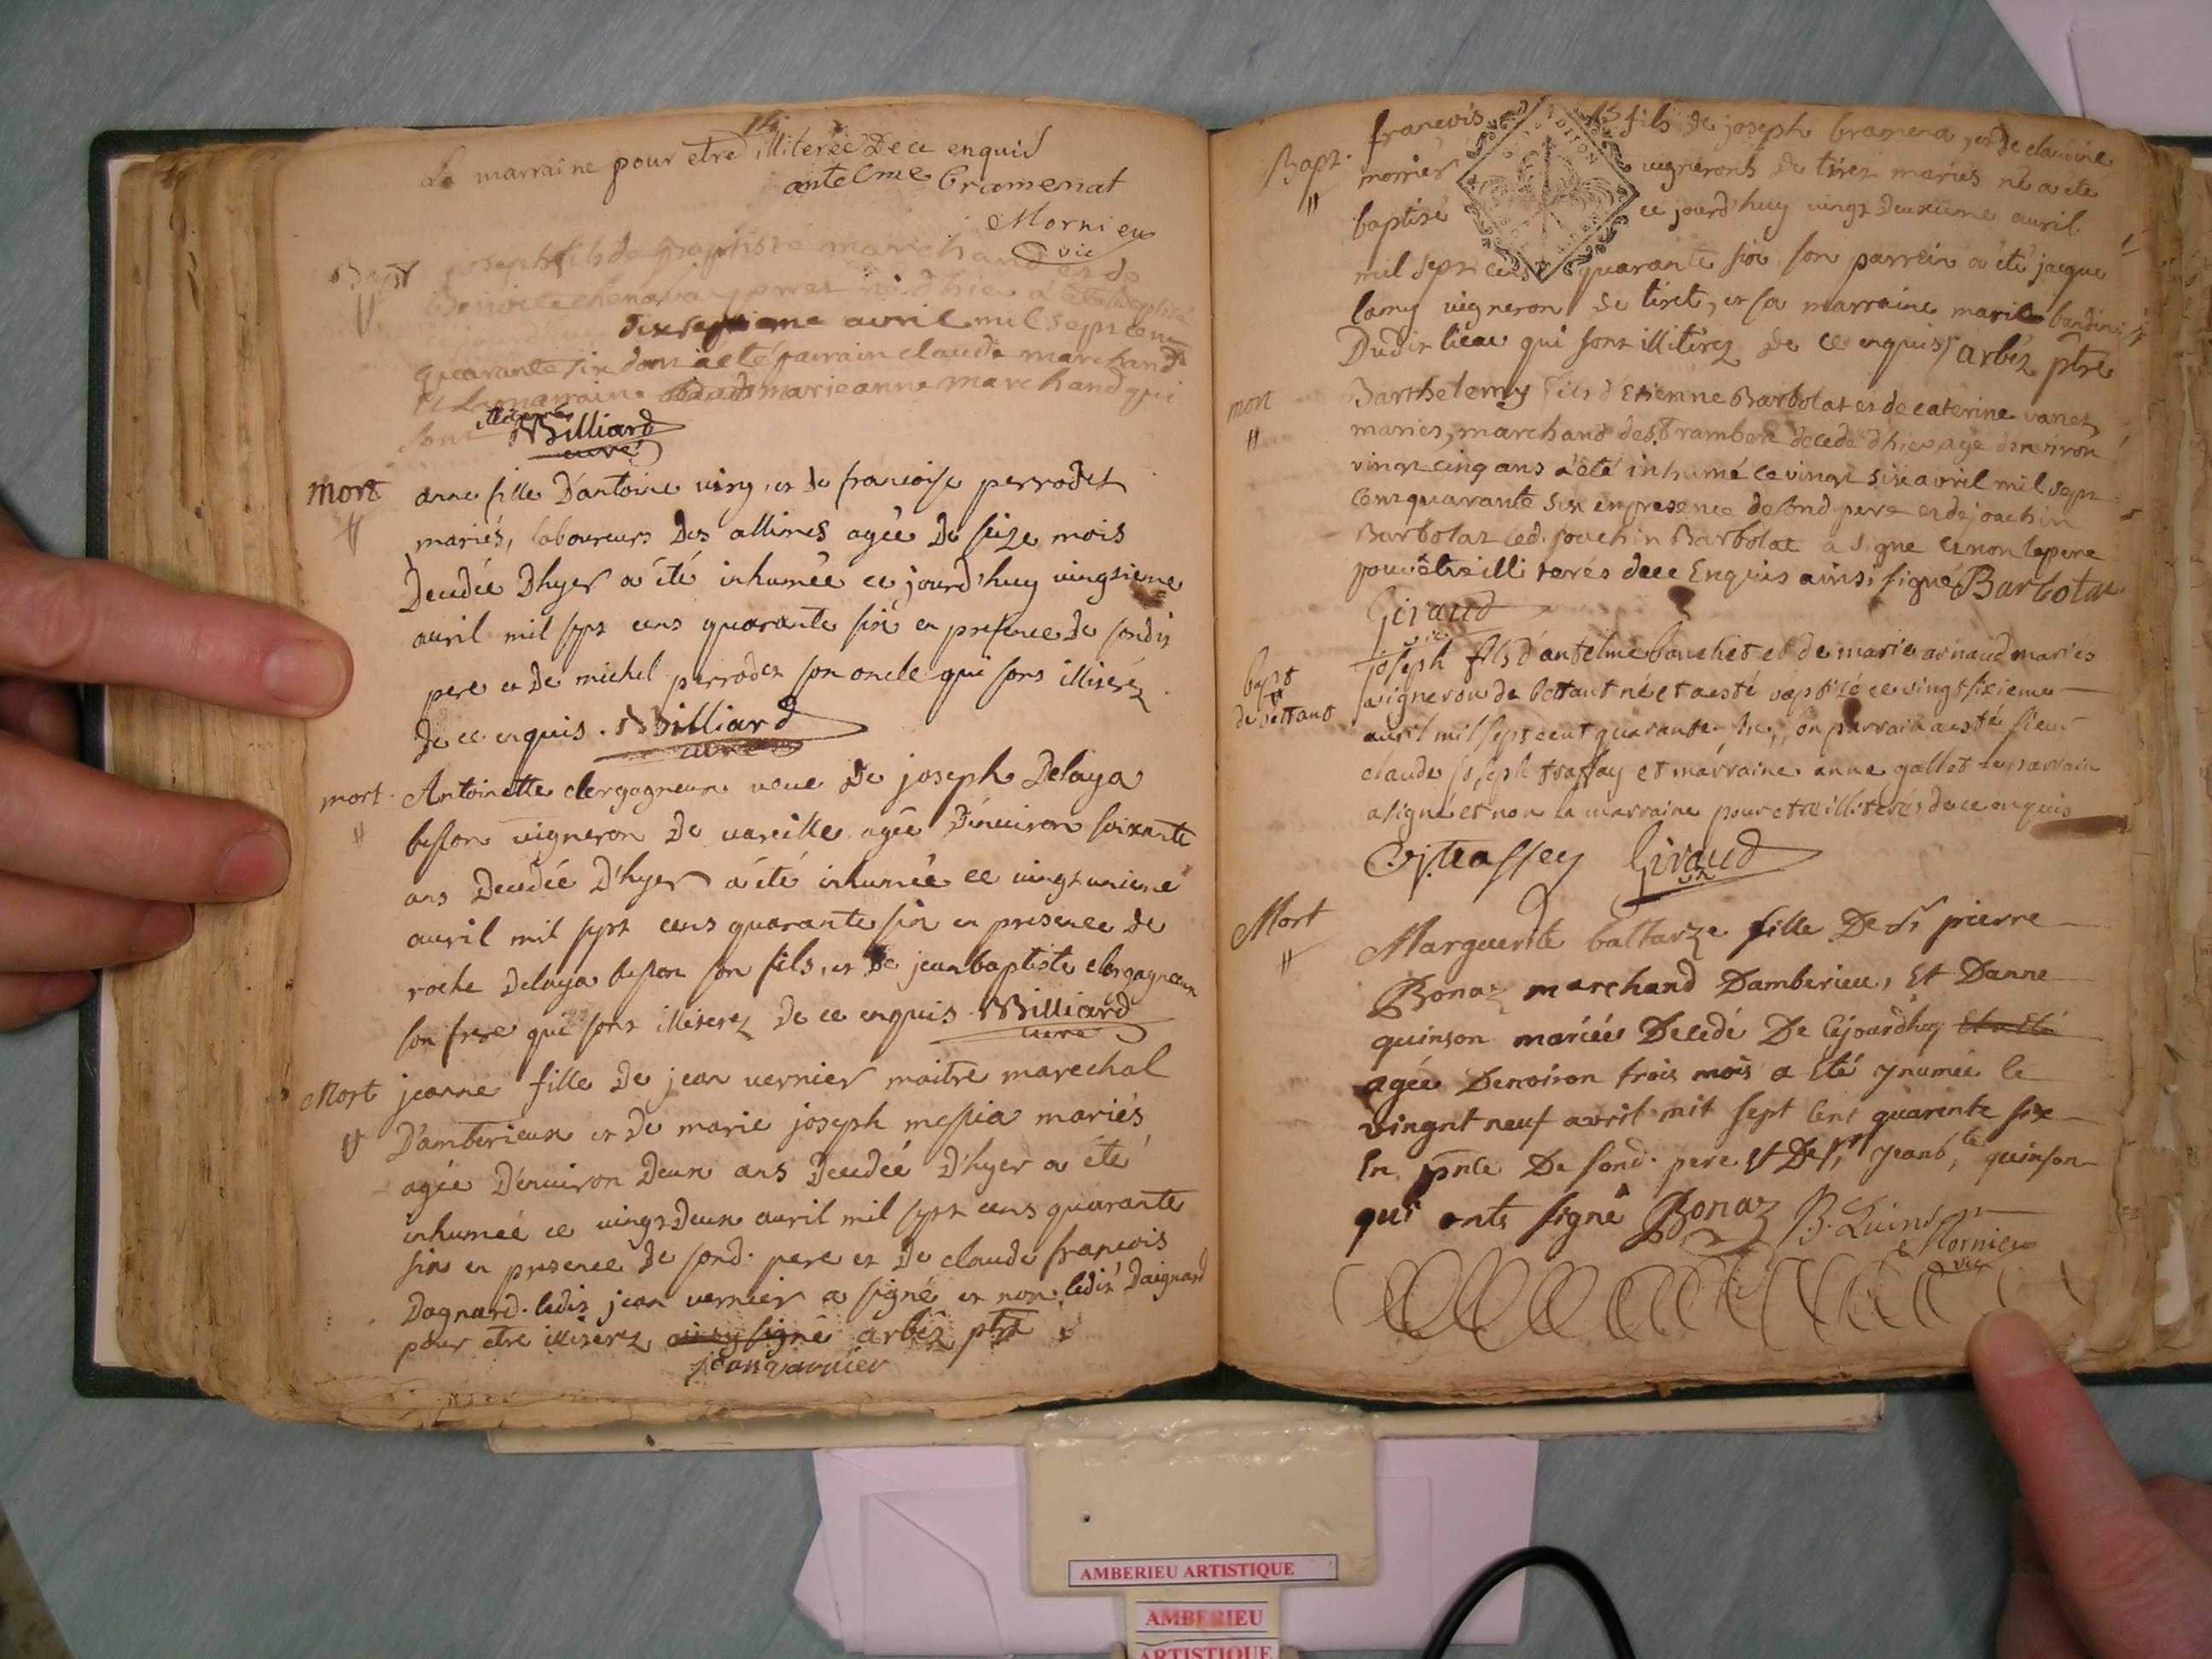 14
La marraine pour etre illiterée De ce enquis
antelme bramenat
Mornieu
vic
Bapt joseph fils de Baptiste marchand et de
Benoite
dixseptieme avril mil sept cent
quarante six dont a eté parrain claude marchand
et La marraine marieanne marchand qui
sont illiterés Billiard
curé
mort anne fille D'antoine viry, et De francoise perrodet
mariés, laboureurs Des allimes agée De seize mois
Decedée D'hyer a été inhumée ce jourd'huy vingtieme
avril mil sept cens quarante six en presence De sondit
pere et De michel perrodet son oncle qui sont illiterez
De ce enquis. Billiard
curé
mort. Antoinette clergagneux veue De joseph Delaya
beston vigneron De vareille agée D'environ soixante
ans Decedée D'hyer a été inhumée ce vingt unieme
avril mil sept cens quarante six en presence De
roche Delaya beston son fils, et De jean baptiste clergagneux
son frere qui sont illiterez De ce enquis. Billiard
curé
Mort jeanne fille De jean vernier maitre marechal
D'amberieux et De marie joseph mespia mariés
agée D'environ Deux ans Decedée D'hyer a été
inhumée ce vingt Deux avril mil sept cens quarante
six en presence De sond. pere et De claude francois
Dagnard. ledit jean vernier a signé et non ledit Daignard
pour etre illiterez ainsy signé arbez ptre
jean varnier
Bapt. francois fils de joseph bramena, et De claudine
mornier vignerons De tiret mariés né a été
baptisé ce jourd'huy vingt Deuxieme avril
mil sept cens quarante six son parrein a été jacque
lamy vigneron De tiret, et sa marraine marie
Dudit lieu qui sont illiterez De ce enquis arbez ptre
mort Barthelemy fils d'Etienne Barbolat et de caterine vanet
mariés, marchand de St rambert decedé d'hier agé denviron
vingt cinq ans a eté inhumé ce vingt six avril mil sept
cent quarante six en presence de sond pere et de joachin
Barbolat led. joachin Barbolat a signé et non le pere
pour être illi terés de ce Enquis ainsi signé Barbolat
Giraud
vic
bapt de bettant joseph fils d'antelme bouchet et de marie arnaud mariés
vigneron de bettant né et a esté baptisé ce vingt sixieme
avril mil sept cent quarante six, son parrain a esté sieur
claude joseph trassay et marraine anne gallet le parrain
a signé et non la marraine pour etre illiterés de ce enquis
C j. trassey Giraud
vic
Mort Marguerite baltarze fille De Sr pierre
Bonaz marchand Damberieu, Et Danne
quinson mariées Decedé De cejourdhuy Et a Eté
agée Denviron trois mois a Eté ynumée le
vingnt neuf avril mil sept cent quarente six
En pnce De sond. pere et De Sr jean b.te quinson
qui onts signé Bonaz B. Quinson
Mornieu
vic
AMBERIEU ARTISTIQUE
AMBERIEU
ARTISTIQUE